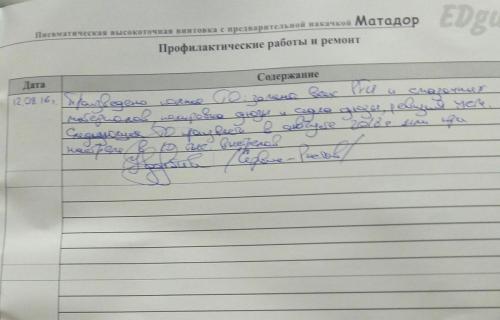 EDgu
Пневматическая высокоточная винтовка с предварительной накачкой Матадор
Профилактические работы и ремонт
Дата Содержание
12.08.16г. Произведено полное ТО: замена всех РТИ и смазочных
материалов, полировка и седла ревизия УСМ.
Следующее ТО произвести в августе 2018г или при
настреле в 10 тыс. выстрелов
/Сервис-